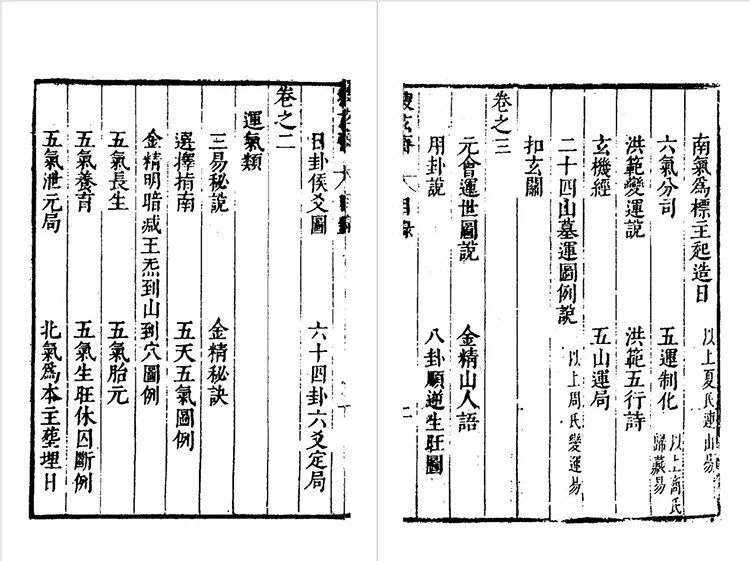 日卦侯爻圖　六十四卦六爻定局
卷之二
運氣類
三易秘說　金精秘訣
選擇指南　五天五氣圖例
金精明暗减王炁到山到穴圖例
五氣長生　五氣胎元
五氣養育　五氣生旺休囚斷例
五氣泄元局　北氣爲本主塋埋日
南氣爲標主起造日　以上夏氏連山易
六氣分司　五運制化　以上商氏歸藏易
洪範變運說　洪範五行詩
玄機經　五山運局
二十四山墓運圖例說　以上周氏變運易
扣玄關
卷之三
元會運世圖說　金精山人語
用卦說　八卦順逆生旺圖
目錄　二